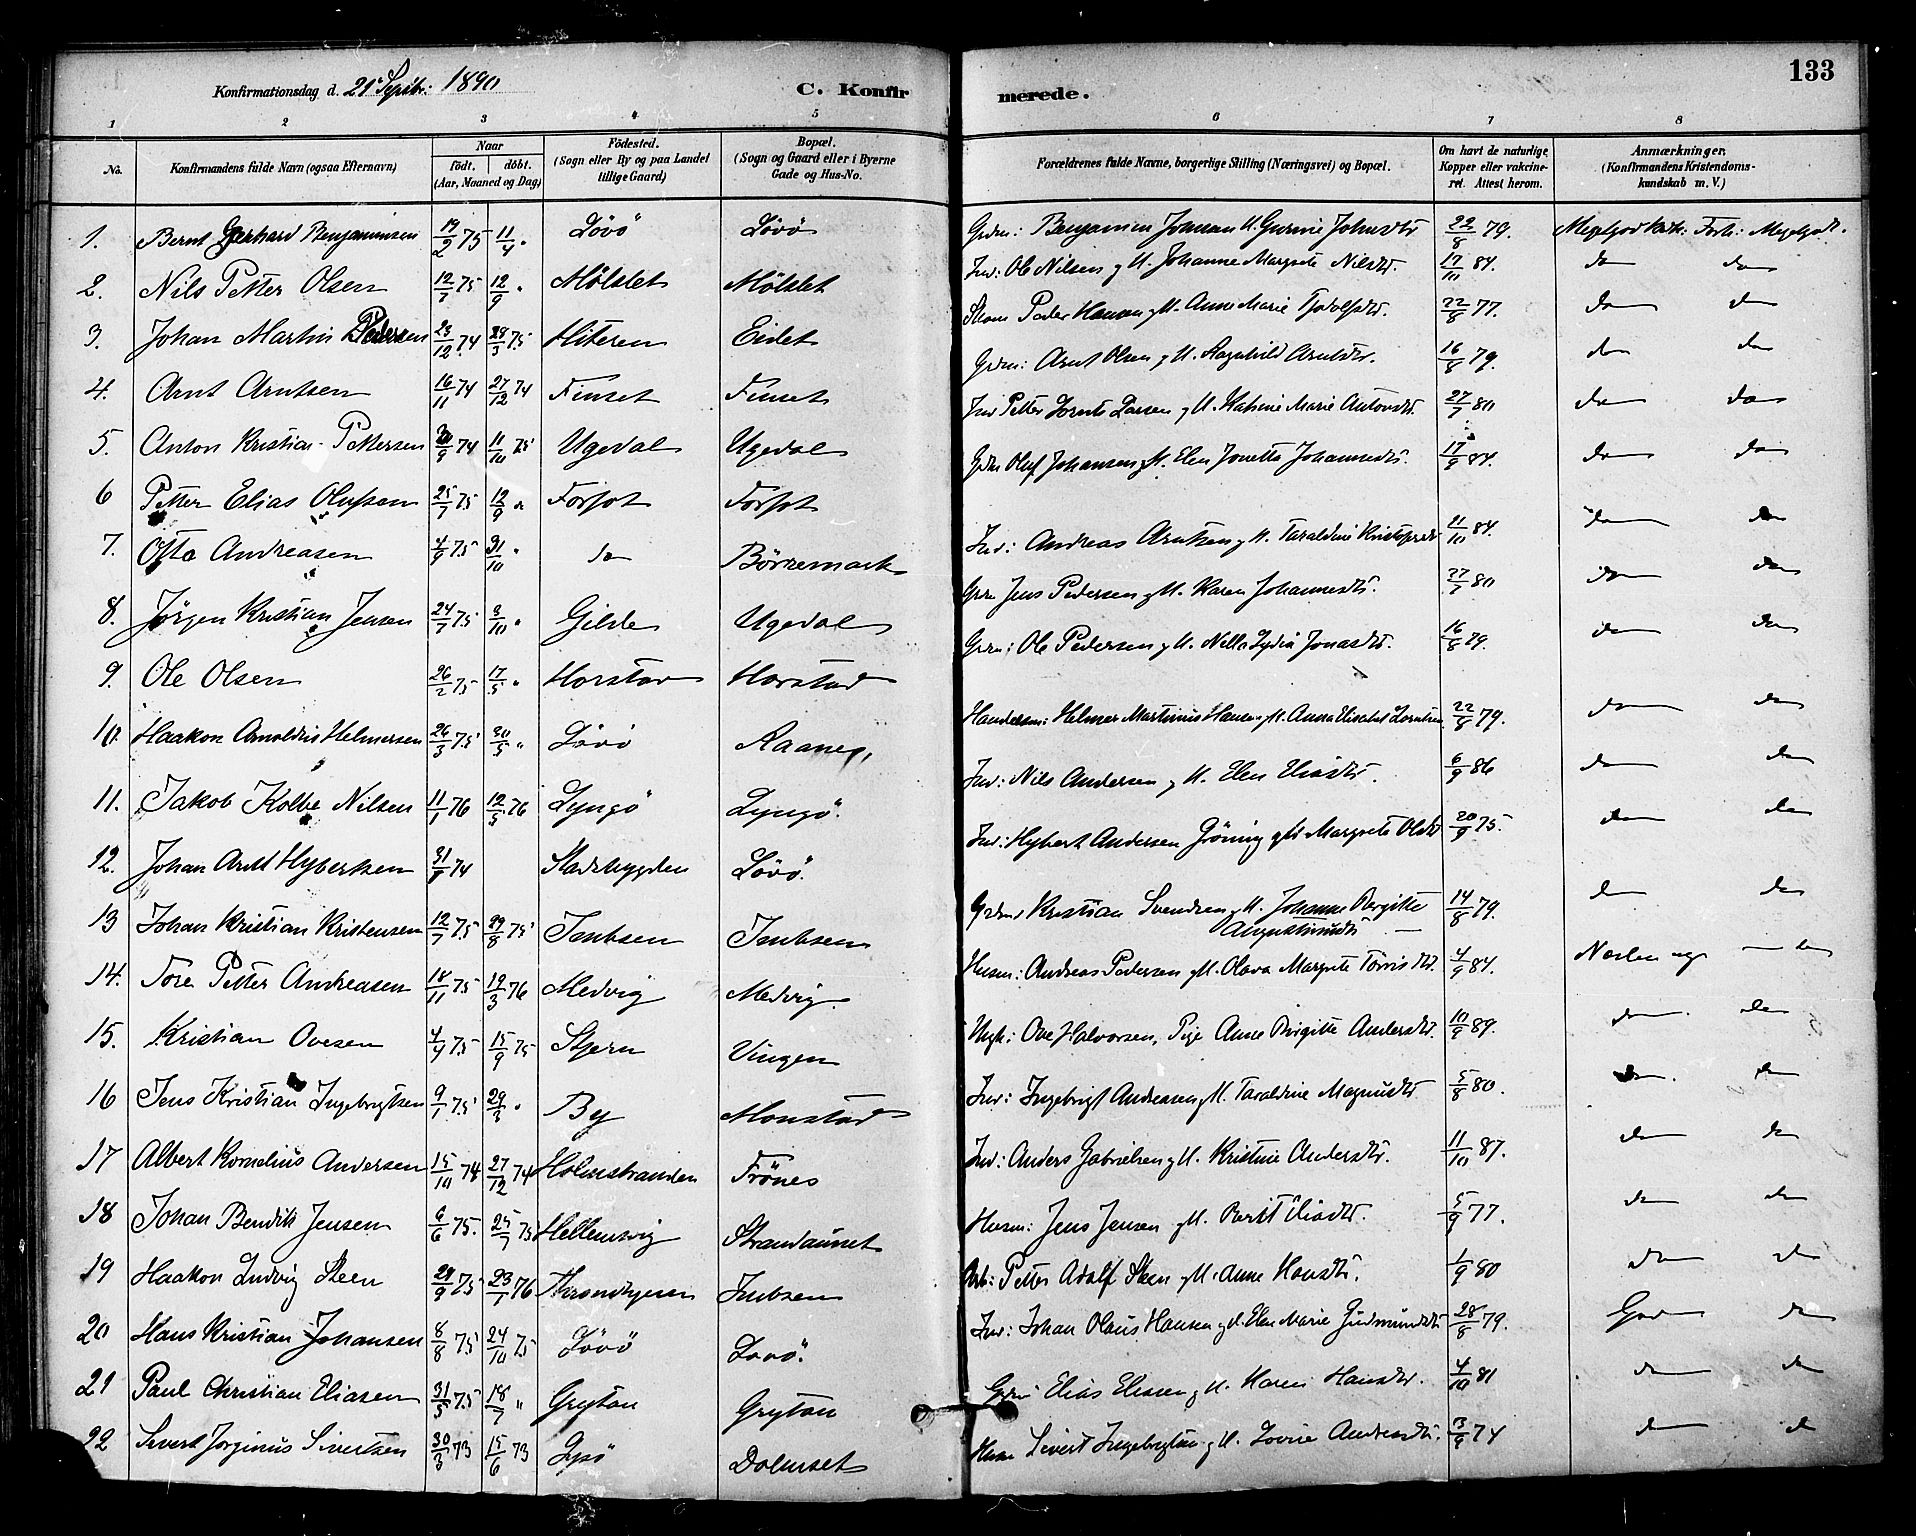 133
Konfirmationsdag d. 21 Septbr: 1890
C. Konfir merede.
1 2 3 4 5 6 7 8
No. Konfirmandens fulde Navn (ogsaa Efternavn) Naar födt. döbt. (Aar, Maaned og Dag) Födested. (Sogn eller By og paa Landet tillige Gaard) Bopæl. (Sogn og Gaard eller i Byerne Gade og Hus-No. Forældrenes fulde Navne, borgerlige Stilling (Næringsvei) og Bopæl. Om havt de naturlige Kopper eller vakcineret. Attest herom. Anmærkninger, (Konfirmandens Kristendomskundskab m. V.)
1. Bernt Gerhard Benjaminsen 19/2 75 11/4 " Lövö Lövö Grdm: Benjamin Johnsen H. Gurine Johnsdtr 22/8 79. Megetgod Fort: Megetgodt.
2. Nils Petter Olsen 12/7 75 12/9 " Mölslet Mölslet Ind: Ole Nilsen g H. Johanne Margrete Nilsdtr. 17/10 84. do do
3. Johan Martin Pedersen 23/12 74 28/3 75 Hiteren Eidet Peder Hansen g H. Anne Marie 22/8 77. do do
4. Arnt Arntsen 16/11 74 27/12 74 Finset Finset Grdm: Arnt Olsen g H. Ragnhild Arntdtr. 16/8 79. do do
5. Anton Kristian Pettersen 9 74 11/10 75 Ugedal Ugedal Ind Petter Lornts Larsen g H. Katrine Marie Antondtr. 27/7 80 do do
6 Petter Elias Olufsen 25/7 75 12/9 " Forfot Forfot Grdm Oluf Johansen g H. Elen Jonette Johannesdtr. 17/9 84. do do
7. Otto Andreasen 4/9 75 31/10 " do Börremark Ind: Andreas Arntsen g H. Taraldine 21/10 84. do do
8. Jörgen Kristian Jensen 24/7 75 3/10 " Gilde Ugedal Grdm Jens Pedersen g H. Karen Johannesdtr. 27/7 80 do do
9. Ole Olsen 26/2 75 17/5 " Horstad Horstad Grdm: Ole Pedersen g H. Nella Lydia Jonasdtr. 16/8 79. do do
10. Haakon Arnoldus Helmersen 26/3 75 30/5 " Lövö Raanes, Handelsm: Helmer Martinus Hansen g H. Anna Elisabet Lorntsen 22/8 79. do do
11. Jakob Kolbe Nilsen 11/1 76 12/5 76 Lyngö Lyngö. Ind: Nils Andersen g H. Elen Eliasdtr. 6/9 86 do do
12. Johan Arnt Hybertsen 31/8 74 Stadsbygden Lövö. Ind: Hybert Andersen Gröning g H Margrete Olsdtr 20/9 75. do do
13 Johan Kristian Kristensen 12/7 75 29/8 75 Inbsen Inbsen Grdm Kristian Svendsen g H. Johanne Bergitte Augustinusdtr 14/8 79. do do
14. Tore Petter Andreasen 18/11 75 19/3 76 Medvig Medvig. Husm: Andreas Pedersen g H. Olava Margrete Törrisdtr. 4/9 84. Næsten mg
15. Kristian Ovesen 4/4 75 15/9 75 Stjern Vingen Ungk: Ove Halvorsen, Pige Anne Birgitte Andersdtr. 10/9 89. do. do
16 Jens Kristian Ingebrigtsen 9/1 75 29/3 " By Monstad Ind: Ingebrigt Andreasen g H. Taraldine Magnusdtr 5/8 80. do. do
17 Albert Kornelius Andersen 15/10 74 27/12 74 Holmstranden Frönes Ind: Anders Gabrielsen g H. Kristine Andersdtr. 11/10 87. do do
18 Johan Bendik Jensen 6/6 75. 25/7 75 Hellemsvig Strandaunet Husm: Jens Jensen g H. Berit Eliasdtr. 5/9 77. do do
19 Haakon Ludvig Steen 29/9 75 23/1 76 Throndhjem Inbsen Arb: Petter Adolf Steen g H. Anne Hansdtr. 1/9 80 do do
20 Hans Kristian Johansen 8/8 75 24/10 75 Lövö Lovö. Ind: Johan Olaus Hansen g H. Elen Marie Gudmundsdtr 28/8 79. God do
21 Paul Christian Eliasen 31/5 75 18/7 " Grytan Grytan Grdm Elias Eliasen g H. Karen Hansdtr. 4/10 81 do do
22 Sivert Jörginus Sivertsen 30/3 73 15/6 73 Lysö Dolmset Husm Sivert Ingebrigtsen g H. Lovise Andreasdtr. 13/9 74 do do